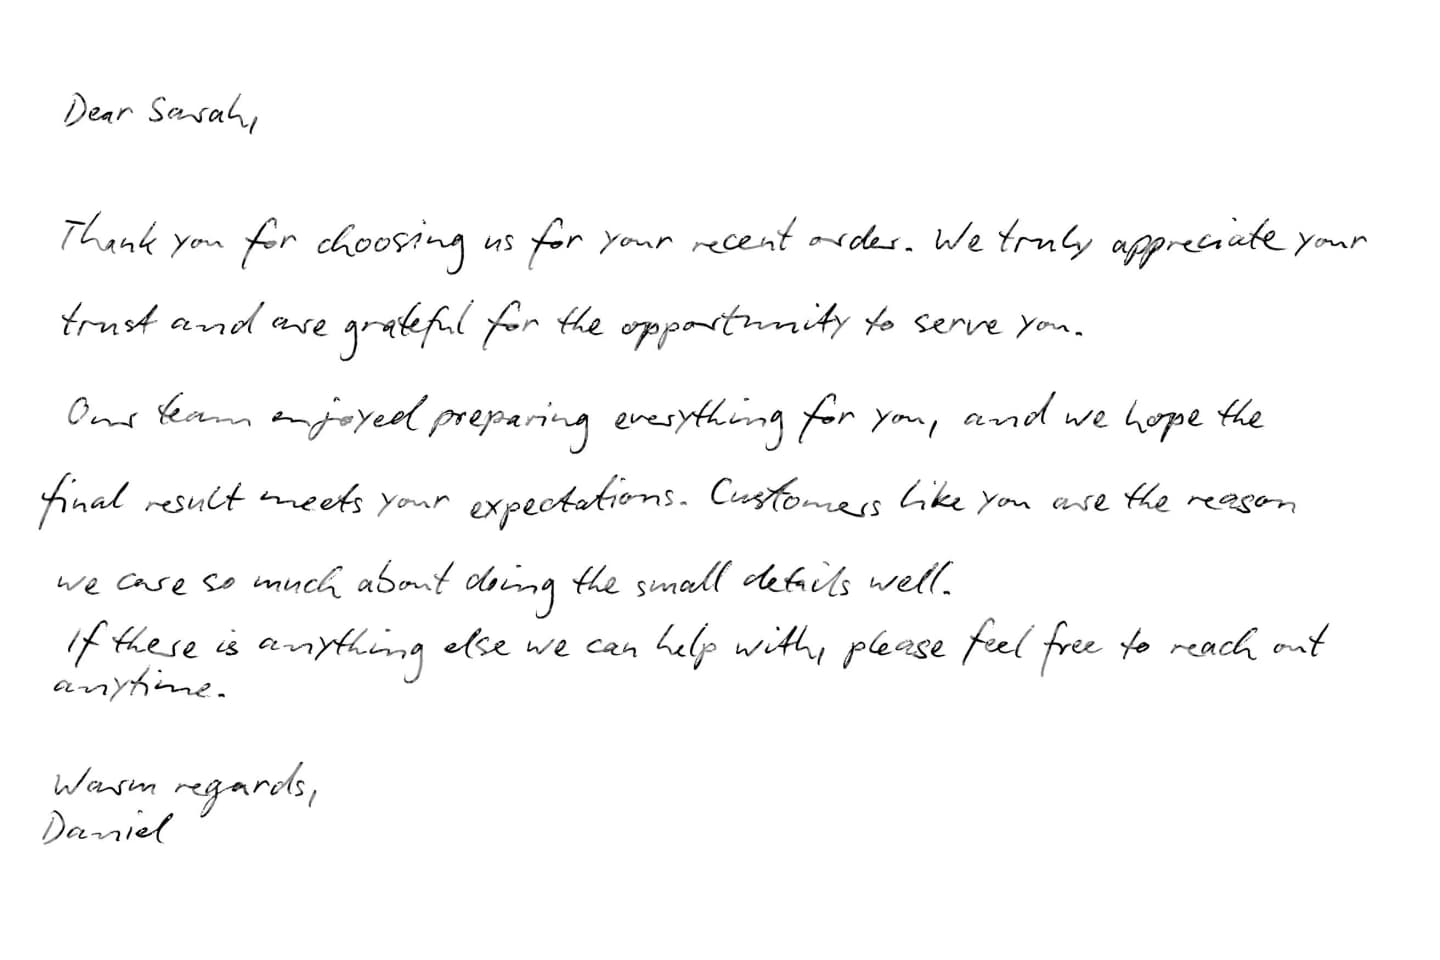 Dear Sarah,
Thank you for choosing us for your recent order. We truly appreciate your
trust and are grateful for the opportunity to serve you.
Our team enjoyed preparing everything for you, and we hope the
final result meets your expectations. Customers like you are the reason
we care so much about doing the small details well.
If there is anything else we can help with, please feel free to reach out
anytime.
Warm regards,
Daniel